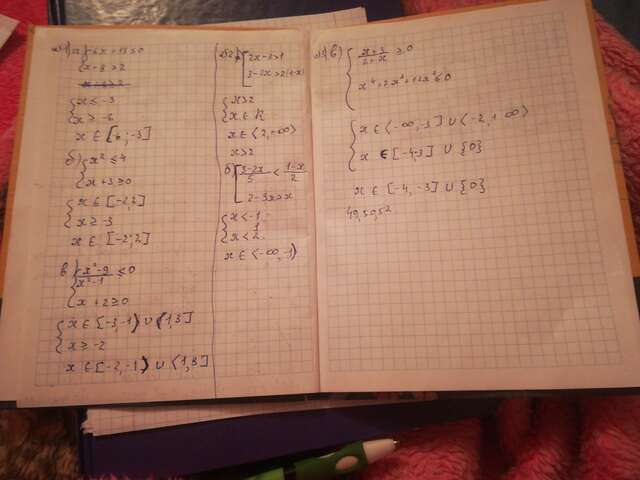 x + 3 > 2
{ x ≤ -3
x ≥ -6
x ∈ [-6; -3]
б) { x² ≤ 4
x + 3 ≥ 0
{ x ∈ [-2,2]
x ≥ -3
x ∈ [-2; 2]
в) { (x² - 9)/(x² - 1) ≤ 0
x + 2 ≥ 0
{ x ∈ [-3,-1) ∪ (1,3]
x ≥ -2
x ∈ [-2,-1) ∪ (1,3]
3-2x > 2(1-x)
{ x > 2
x ∈ R
x ∈ (2,+∞)
x > 2
б) [ (3-2x)/5 < (1-x)/2
2-3x > x
{ x < -1
x < 1/2
x ∈ (-∞,-1)
в) { (x+3)/(2+x) ≥ 0
{ x ∈ (-∞,-3] ∪ (-2,+∞)
x ∈ [-4-3] ∪ {0}
x ∈ [-4,-3] ∪ {0}
49,50,52